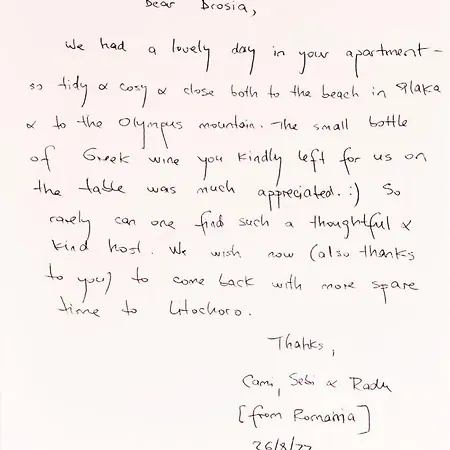 Dear Drosia,
We had a lovely day in your apartment -
so tidy & cosy & close both to the beach in Plaka
& to the Olympus mountain. The small bottle
of Greek wine you kindly left for us on
the table was much appreciated. :) So
rarely can one find such a thoughtful &
kind host. We wish now (also thanks
to you) to come back with more spare
time to Litochoro.
Thanks,
Cami, Sebi & Radu
[from Romania]
26/8/22